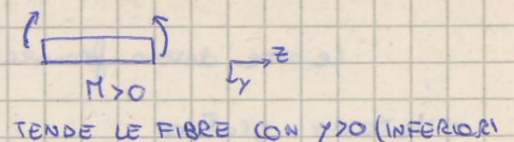 Z
Y
M>0
TENDE LE FIBRE CON Y>0 (INFERIORI